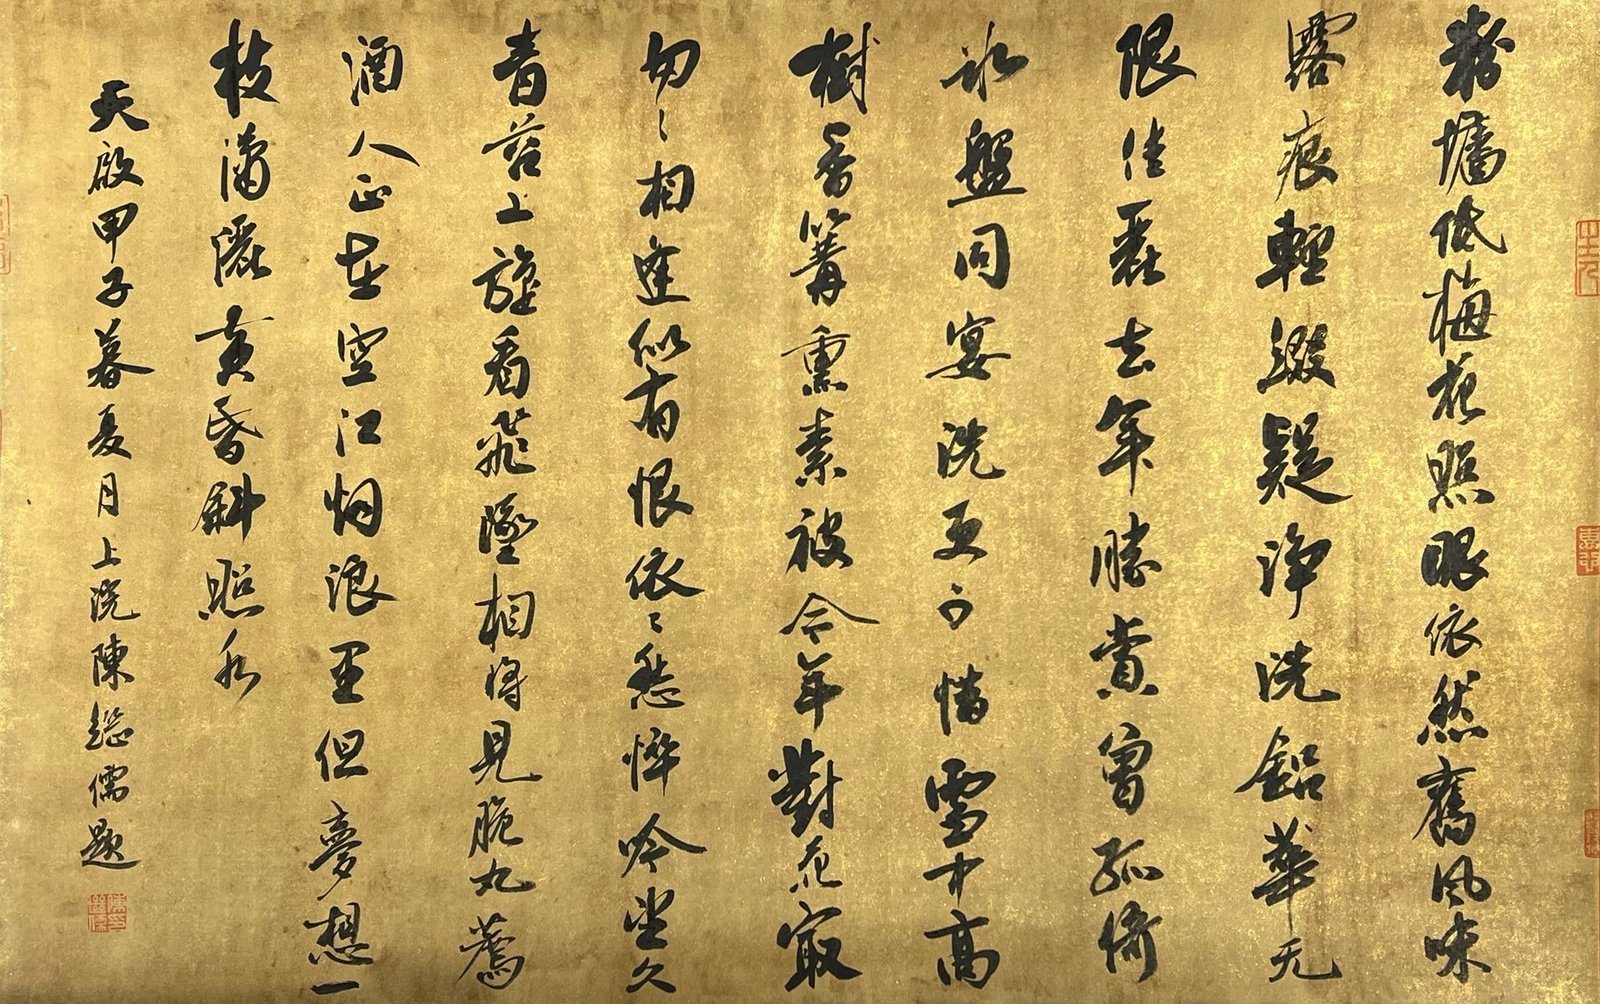 粉墻低梅花照眼依然舊風味
露痕輕綴疑淨洗鉛華无
限佳麗去年勝賞曾孤倚
冰盤同宴洗更可惜雪中高
樹香篝熏素被今年對花最
匆〻相逢似有恨依〻愁悴吟望久
青苔上旋看飛墜相將見脆丸薦
酒人正在空江烟浪里但夢想一
枝瀟灑黄昏斜照水
天啟甲子暮夏月上浣陳繼儒題